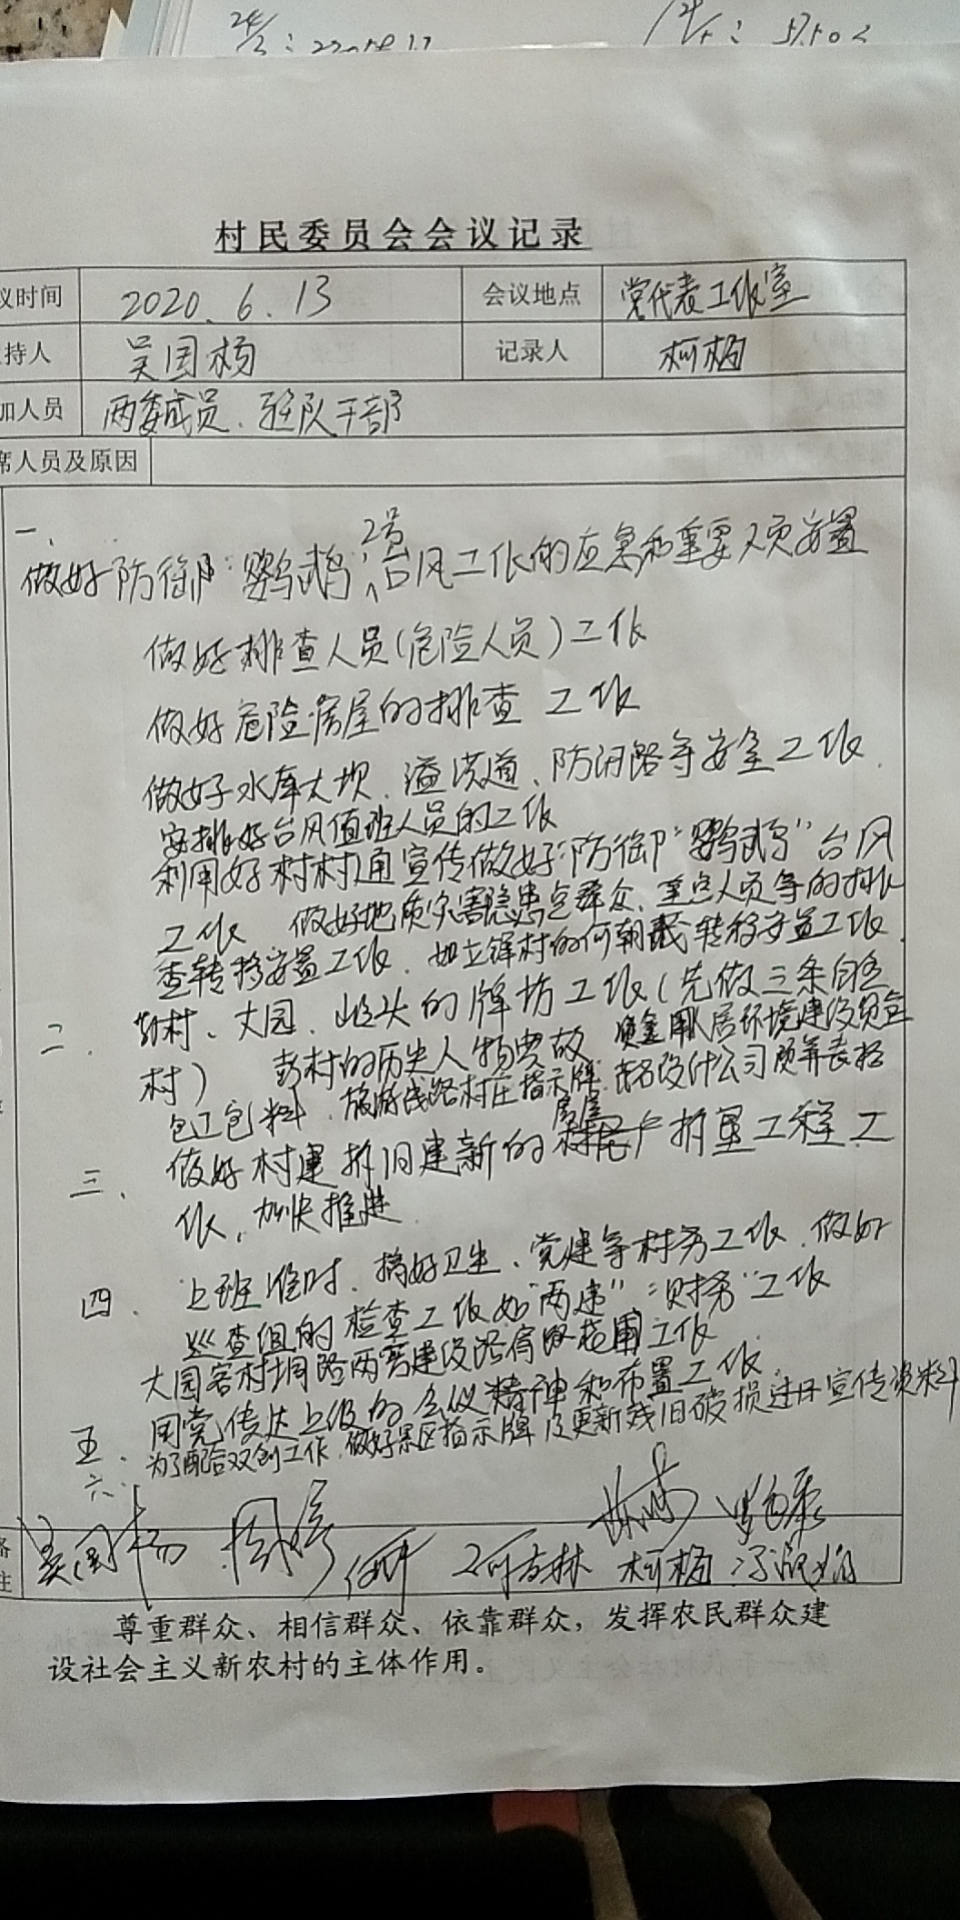 村民委员会会议记录
议时间 2020.6.13 会议地点 党代表工作室
持人 吴国杨 记录人 柯杨
加人员 两委成员、驻队干部
席人员及原因
一、
2号
做好防御"鹦鹉"台风工作的应急和重要人员安置
做好排查人员(危险人员)工作
做好危险房屋的排查工作
做好水库大坝、溢洪道、防汛路等安全工作
安排好台风值班人员的工作
利用好村村通宣传做好防御"鹦鹉"台风
工作 做好地质灾害隐患点群众、重点人员等的排
查转移安置工作、如立锋村的何朝 转移安置工作
二、 村、大园、 头的牌坊工作(先做三条自然
村) 村的历史人物典故 资金用人居环境建设资金
包工包料、旅游线路村庄指示牌 设计公司预算表格
房屋
三、做好村建拆旧建新的 户拆量工程工
作、加快推进
四、上班准时、搞好卫生、党建等村务工作、做好
巡查组的检查工作如"两违""财务"工作
大园客村 路两旁建设路肩 范围工作
五、 传达上级的会议精神和布置工作
六、为了配合双创工作、做好景区指示牌及更新残旧破损过期宣传资料
吴国杨 柯杨
注
尊重群众、相信群众、依靠群众，发挥农民群众建
设社会主义新农村的主体作用。